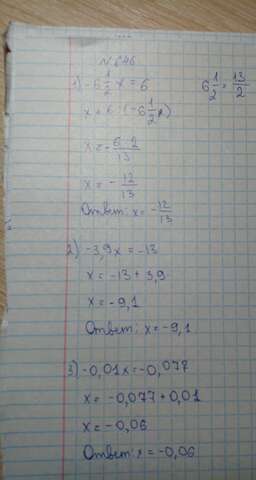 № 646
1) -6 1/2 x = 6
6 1/2 = 13/2
x = 6 : (-6 1/2)
x = - 6·2/13
x = - 12/13
Ответ: x = - 12/13
2) -3,9x = -13
x = -13 + 3,9
x = -9,1
Ответ: x = -9,1
3) -0,01x = -0,077
x = -0,077 + 0,01
x = -0,06
Ответ: x = -0,06